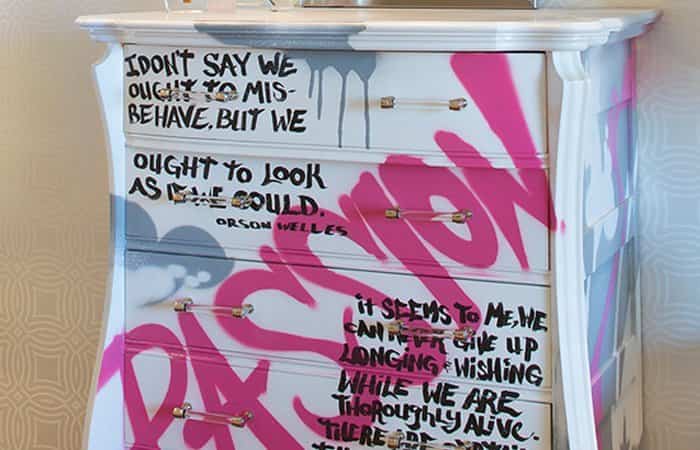 I DON'T SAY WE
OUGHT TO MIS-
BEHAVE, BUT WE
OUGHT TO LOOK
AS IF WE COULD.
ORSON WELLES
PASSION!
it SEEMS to ME, WE
CAN NEVER GIVE UP
LONGING & WISHING
WHILE WE ARE
thoroughly ALIVE.
THERE ARE